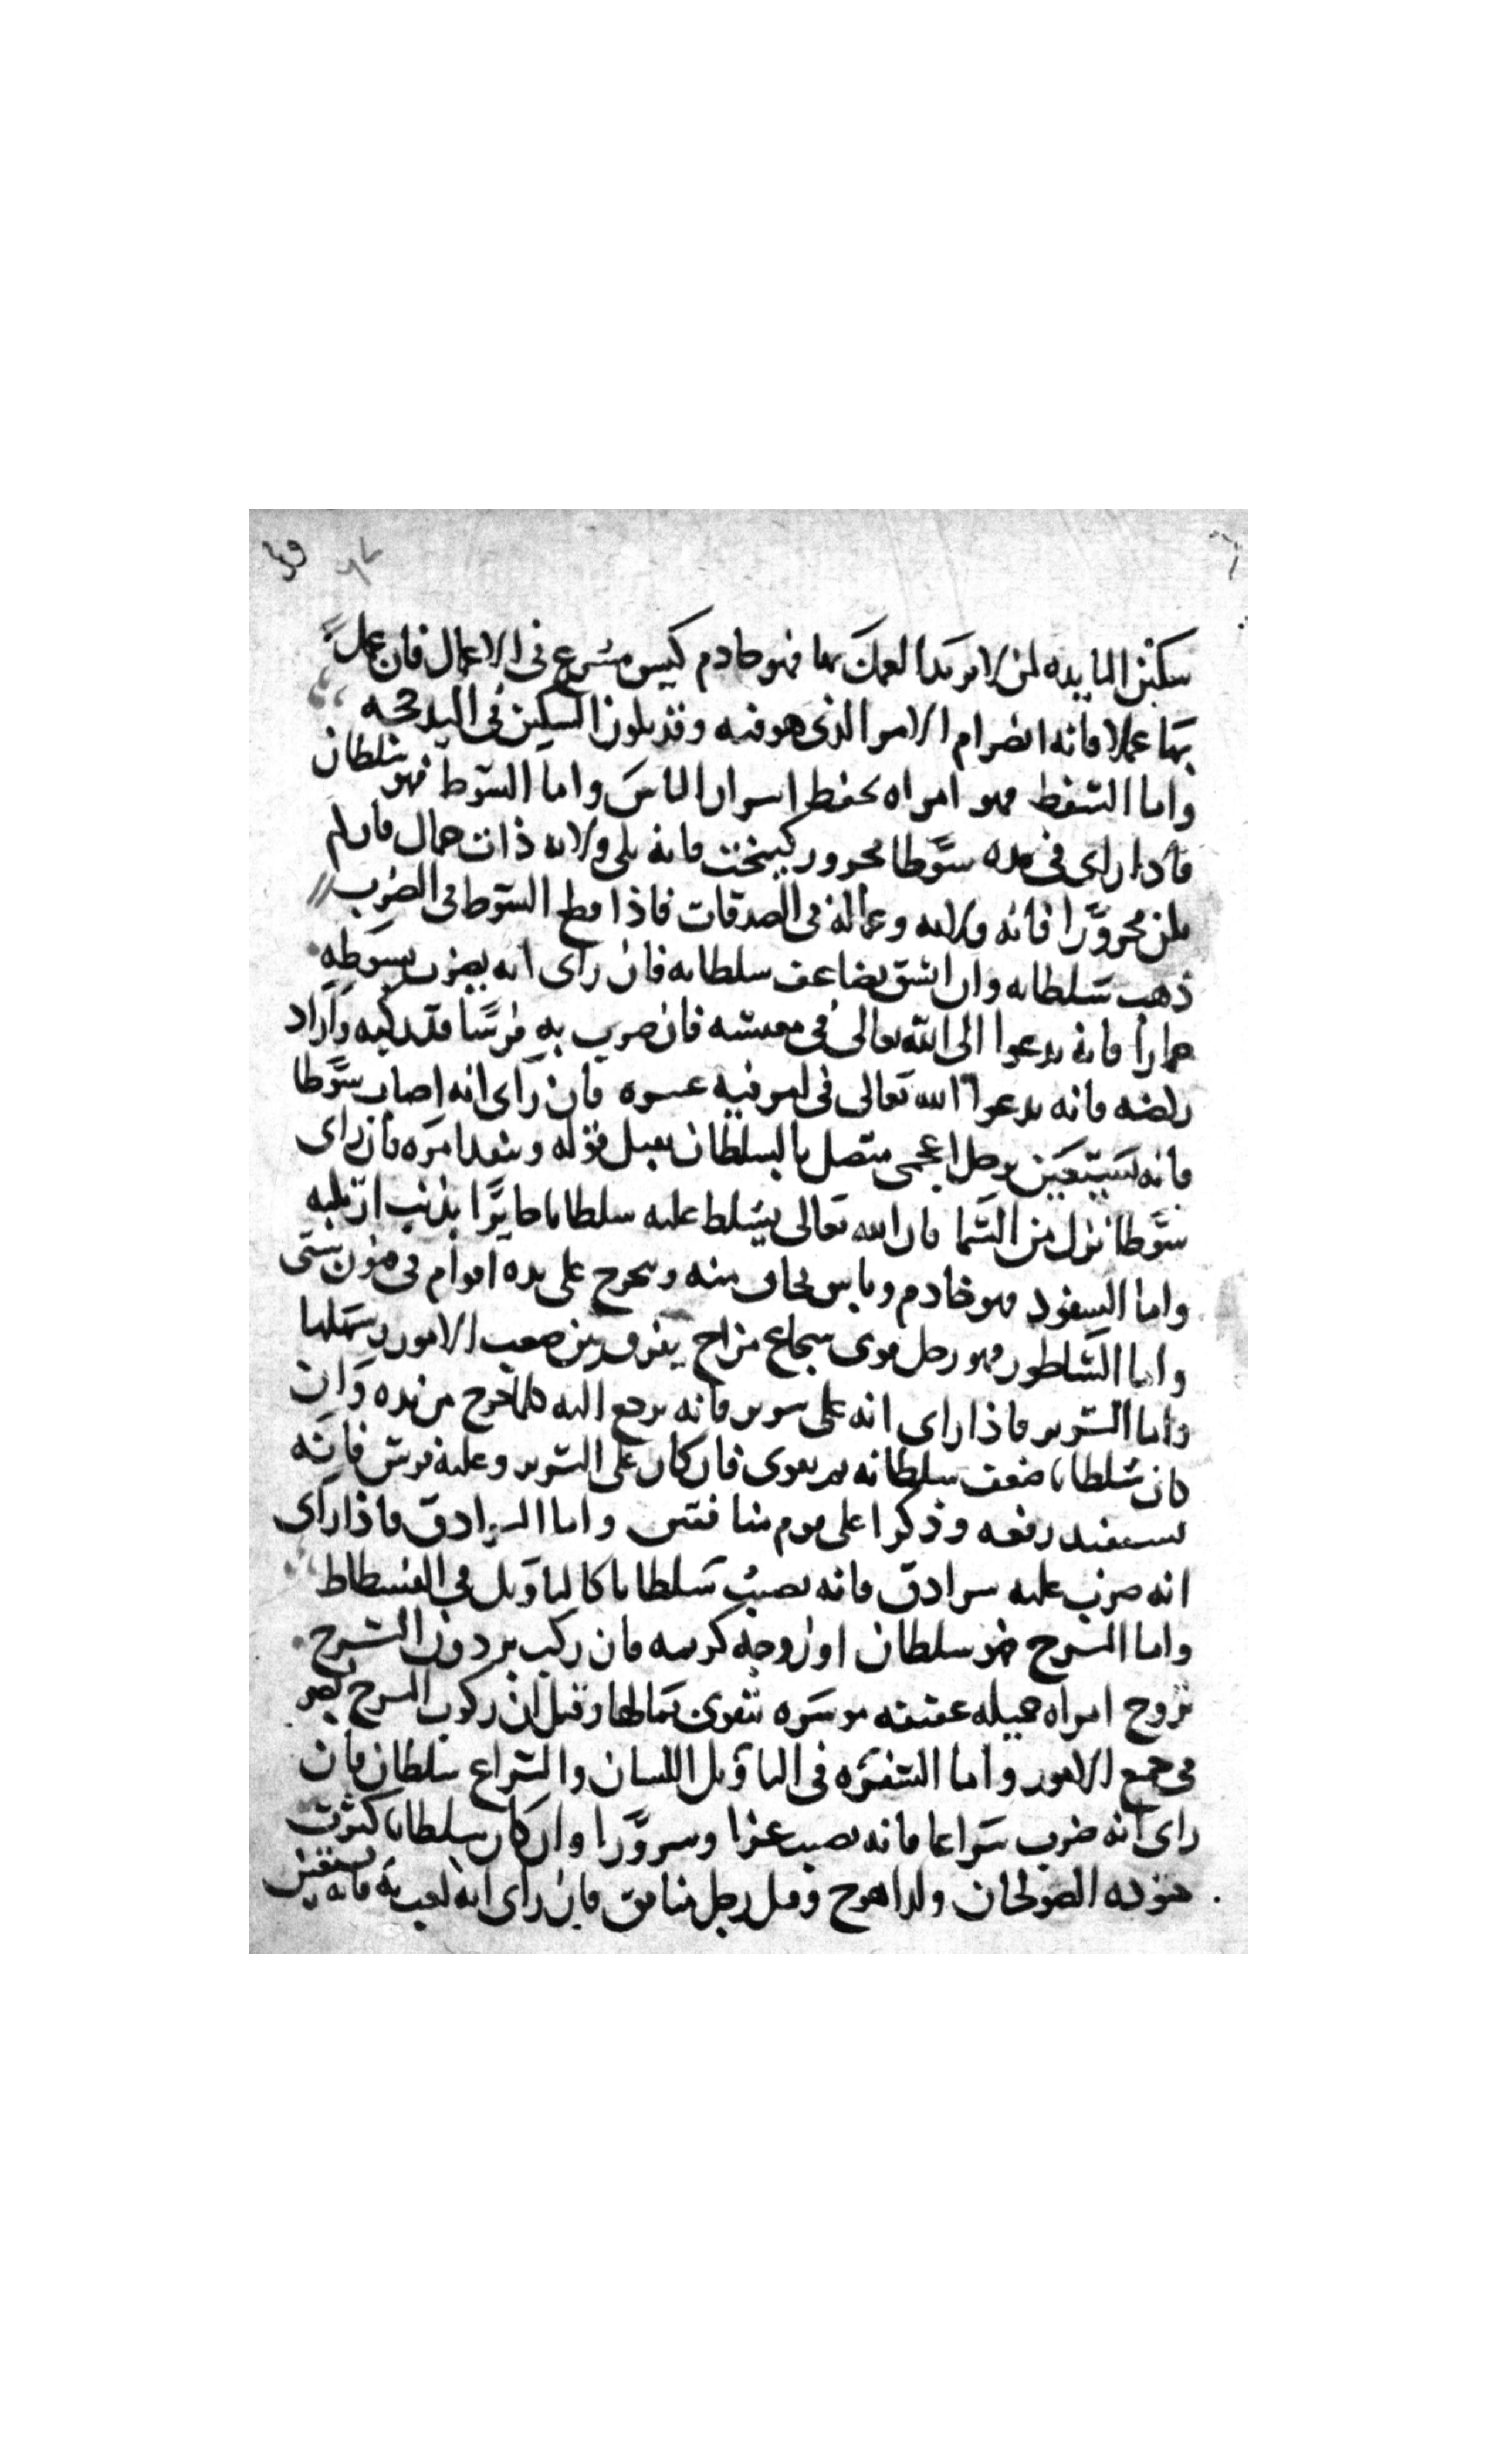 سكين المايده لمن لا يريد العمل بها فهو خادم كيس مسرع في الاعمال فان عمل
بها عملا فانه انصرام الامر الذي هو فيه وقد يكون السكين في اليد حجه
واما السفط فهو امراه تحفظ اسرار الناس واما السوط فهو سلطان
فاذا راى في يده سوطا محرور كيمخت فانه يلي ولايه ذات جمال فان لم
يكن محرورا فانه ولايه وعماله في الصدقات فاذا قطع السوط في الضرب
ذهب سلطانه وان انشق تضاعف سلطانه فان راى انه يضرب بسوطه
حمارا فانه يدعوا الى الله تعالى في معيشته فان ضرب به فرسا قد ركبه واراد
ركضه فانه يدعوا الله تعالى في امر فيه عسره فان راى انه اصاب سوطا
فانه يستعين برجل اعجمي متصل بالسلطان يقبل قوله وينفد امره فان راى
سوطا نزل من السما فان الله تعالى يسلط عليه سلطانا جايرا بذنب ارتكبه
واما السفود فهو خادم وباس يخاف منه ويخرج على يده اقوام في فنون شتى
واما الساطور فهو رجل قوي شجاع مزاح يفرق بين صعب الامور وسهلها
واما السرير فاذا راى انه على سرير فانه يرجع اليه كلما خرج من يده وان
كان سلطانا ضعف سلطانه ثم يقوى فان كان على السرير وعليه فرش فانه
يستفيد رفعه وذكرا على قوم منافقين واما السرادق فاذا راى
انه ضرب عليه سرادق فانه يصيب سلطانا كالتاويل في الفسطاط
واما السرج فهو سلطان او زوجه كريمه فان ركب بردون السرج
تزوج امراه جميله عفيفه موسره يتقوى بمالها وقيل ان ركوب السرج نصر
في جميع الامور واما السفره في التاويل اللسان والشراع سلطان فان
راى انه ضرب شراعا فانه يصيب عزا وسرورا وان كان سلطانا كثرت
جنوده الصولجان ولد اهوج وقيل رجل منافق فان راى انه لعب به فانه يستعين